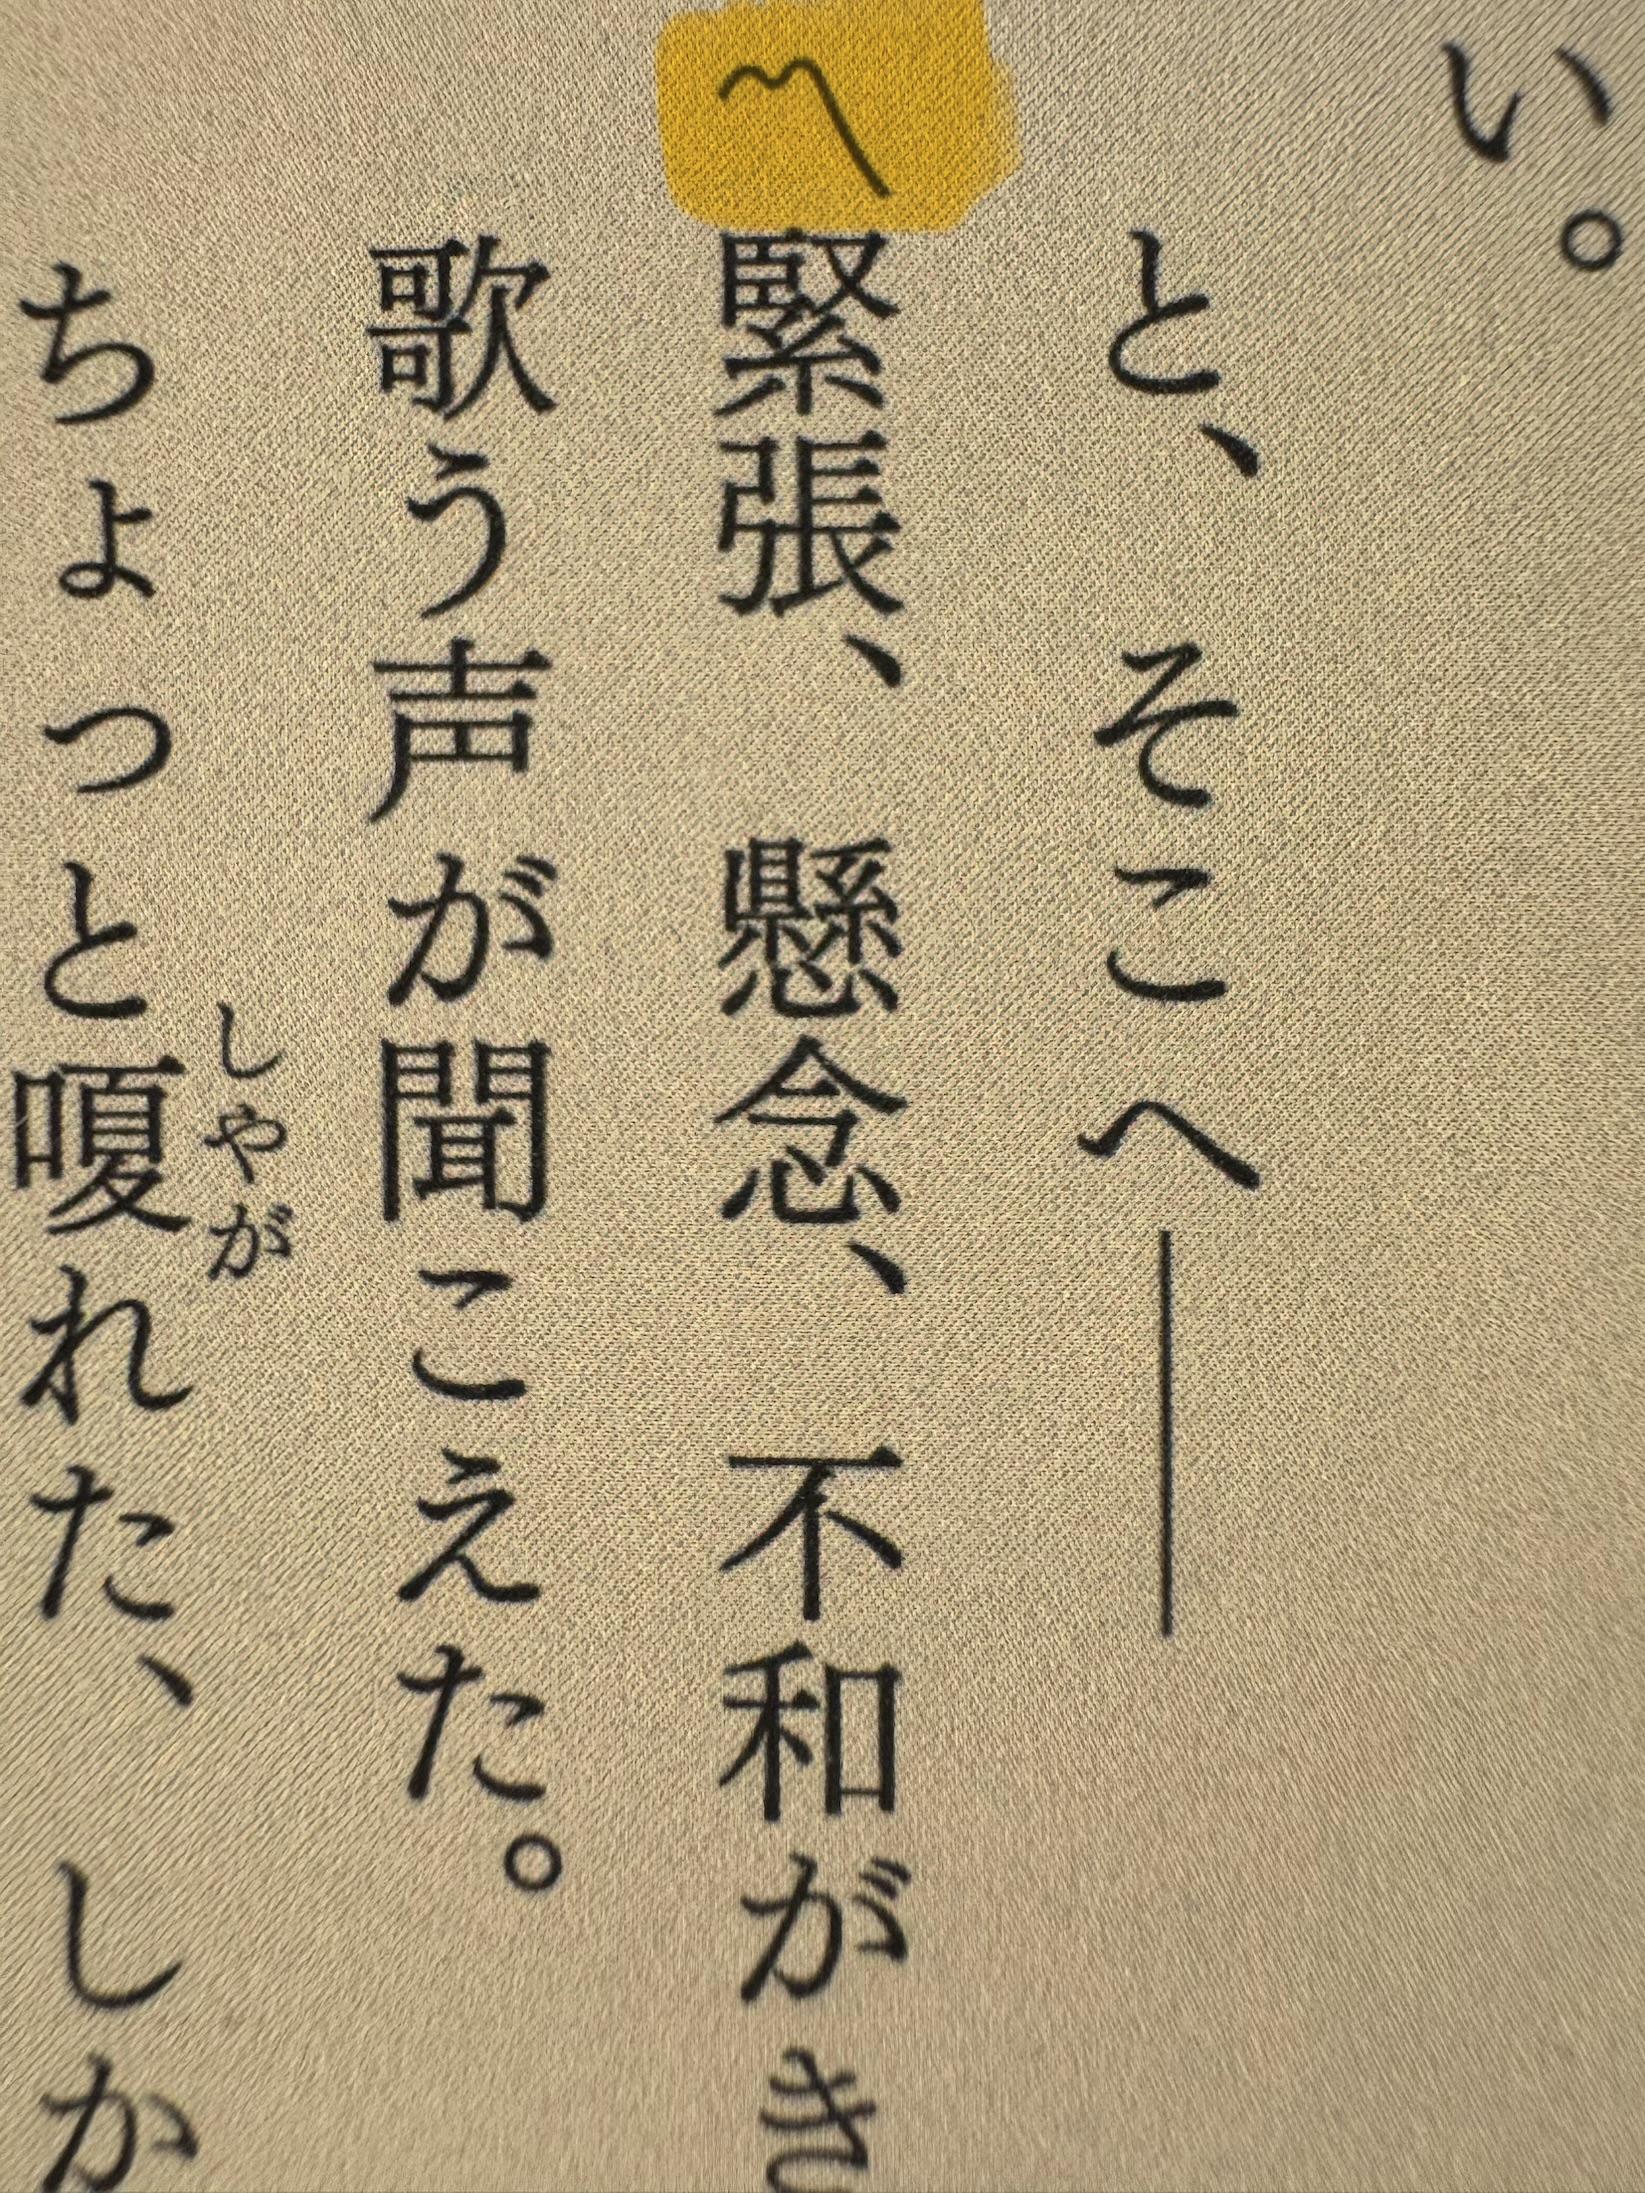 い。
と、そこへ――
〽緊張、懸念、不和がき
歌う声が聞こえた。
ちょっと嗄れた、しか
しゃが